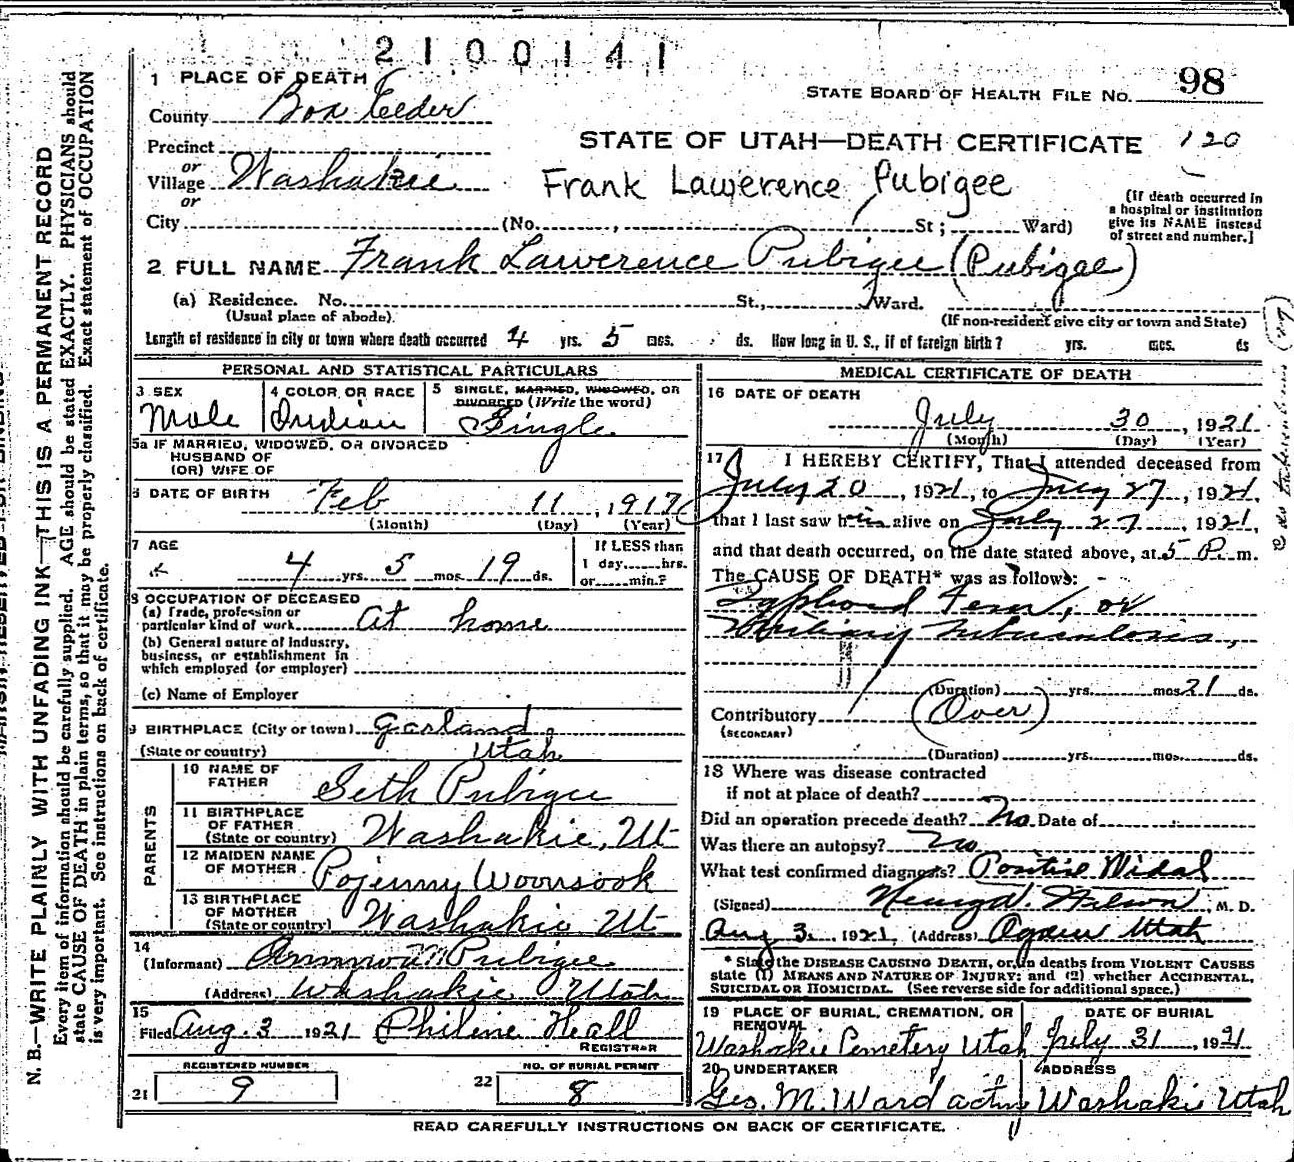 2100141
1 PLACE OF DEATH
County Box Elder
STATE BOARD OF HEALTH FILE NO. 98
Precinct
STATE OF UTAH—DEATH CERTIFICATE 120
or
Village Washakie
Frank Lawerence Pubigee
or
City (No. , St; Ward)
(If death occurred in
a hospital or institution
give its NAME instead
of street and number.]
2 FULL NAME Frank Lawerence Pubigee (Pubigee)
(a) Residence. No. St., Ward.
(Usual place of abode). (If non-resident give city or town and State)
Length of residence in city or town where death occurred 4 yrs. 5 mos. ds. How long in U. S., if of foreign birth? yrs. mos. ds
PERSONAL AND STATISTICAL PARTICULARS
3 SEX
Male
4 COLOR OR RACE
Indian
5 SINGLE, MARRIED, WIDOWED, OR
DIVORCED (Write the word)
Single
5a IF MARRIED, WIDOWED, OR DIVORCED
HUSBAND OF
(OR) WIFE OF
6 DATE OF BIRTH Feb 11, 1917
(Month) (Day) (Year)
7 AGE
4 yrs. 5 mos 19 ds.
If LESS than
1 day......hrs.
or......min.?
8 OCCUPATION OF DECEASED
(a) Trade, profession or
particular kind of work At home
(b) General nature of industry,
business, or establishment in
which employed (or employer)
(c) Name of Employer
9 BIRTHPLACE (City or town) Garland
(State or country) Utah
PARENTS
10 NAME OF
FATHER Seth Pubigee
11 BIRTHPLACE
OF FATHER
(State or country) Washakie, Ut
12 MAIDEN NAME
OF MOTHER Pojenny Woonsook
13 BIRTHPLACE
OF MOTHER
(State or country) Washakie Ut
14
(Informant) Pubigee
(Address) Washakie Utah
15
Filed Aug. 3 1921 Philine Heall
REGISTRAR
REGISTERED NUMBER
21 9
NO. OF BURIAL PERMIT
22 8
MEDICAL CERTIFICATE OF DEATH
16 DATE OF DEATH
July 30, 1921
(Month) (Day) (Year)
17 I HEREBY CERTIFY, That I attended deceased from
July 20, 1921, to July 27, 1921,
that I last saw him alive on July 27, 1921,
and that death occurred, on the date stated above, at 5 P. m.
The CAUSE OF DEATH* was as follows:
Typhoid Fever, or
Miliary Tuberculosis,
(Duration) yrs. mos 21 ds.
Contributory (Over)
(SECONDARY)
(Duration) yrs. mos. ds.
18 Where was disease contracted
if not at place of death?
Did an operation precede death? No Date of
Was there an autopsy? No
What test confirmed diagnosis? Positive Widal
(Signed) , M. D.
Aug 3. 1921, (Address) Ogden Utah
* State the DISEASE CAUSING DEATH, or in deaths from VIOLENT CAUSES
state (1) MEANS AND NATURE OF INJURY; and (2) whether ACCIDENTAL,
SUICIDAL OR HOMICIDAL. (See reverse side for additional space.)
19 PLACE OF BURIAL, CREMATION, OR
REMOVAL
Washakie Cemetery Utah
DATE OF BURIAL
July 31, 1921
20 UNDERTAKER
Geo. M. Ward acting
ADDRESS
Washakie Utah
READ CAREFULLY INSTRUCTIONS ON BACK OF CERTIFICATE.
N. B.—WRITE PLAINLY WITH UNFADING INK—THIS IS A PERMANENT RECORD
Every item of information should be carefully supplied. AGE should be stated EXACTLY. PHYSICIANS should
state CAUSE OF DEATH in plain terms, so that it may be properly classified. Exact statement of OCCUPATION
is very important. See instructions on back of certificate.